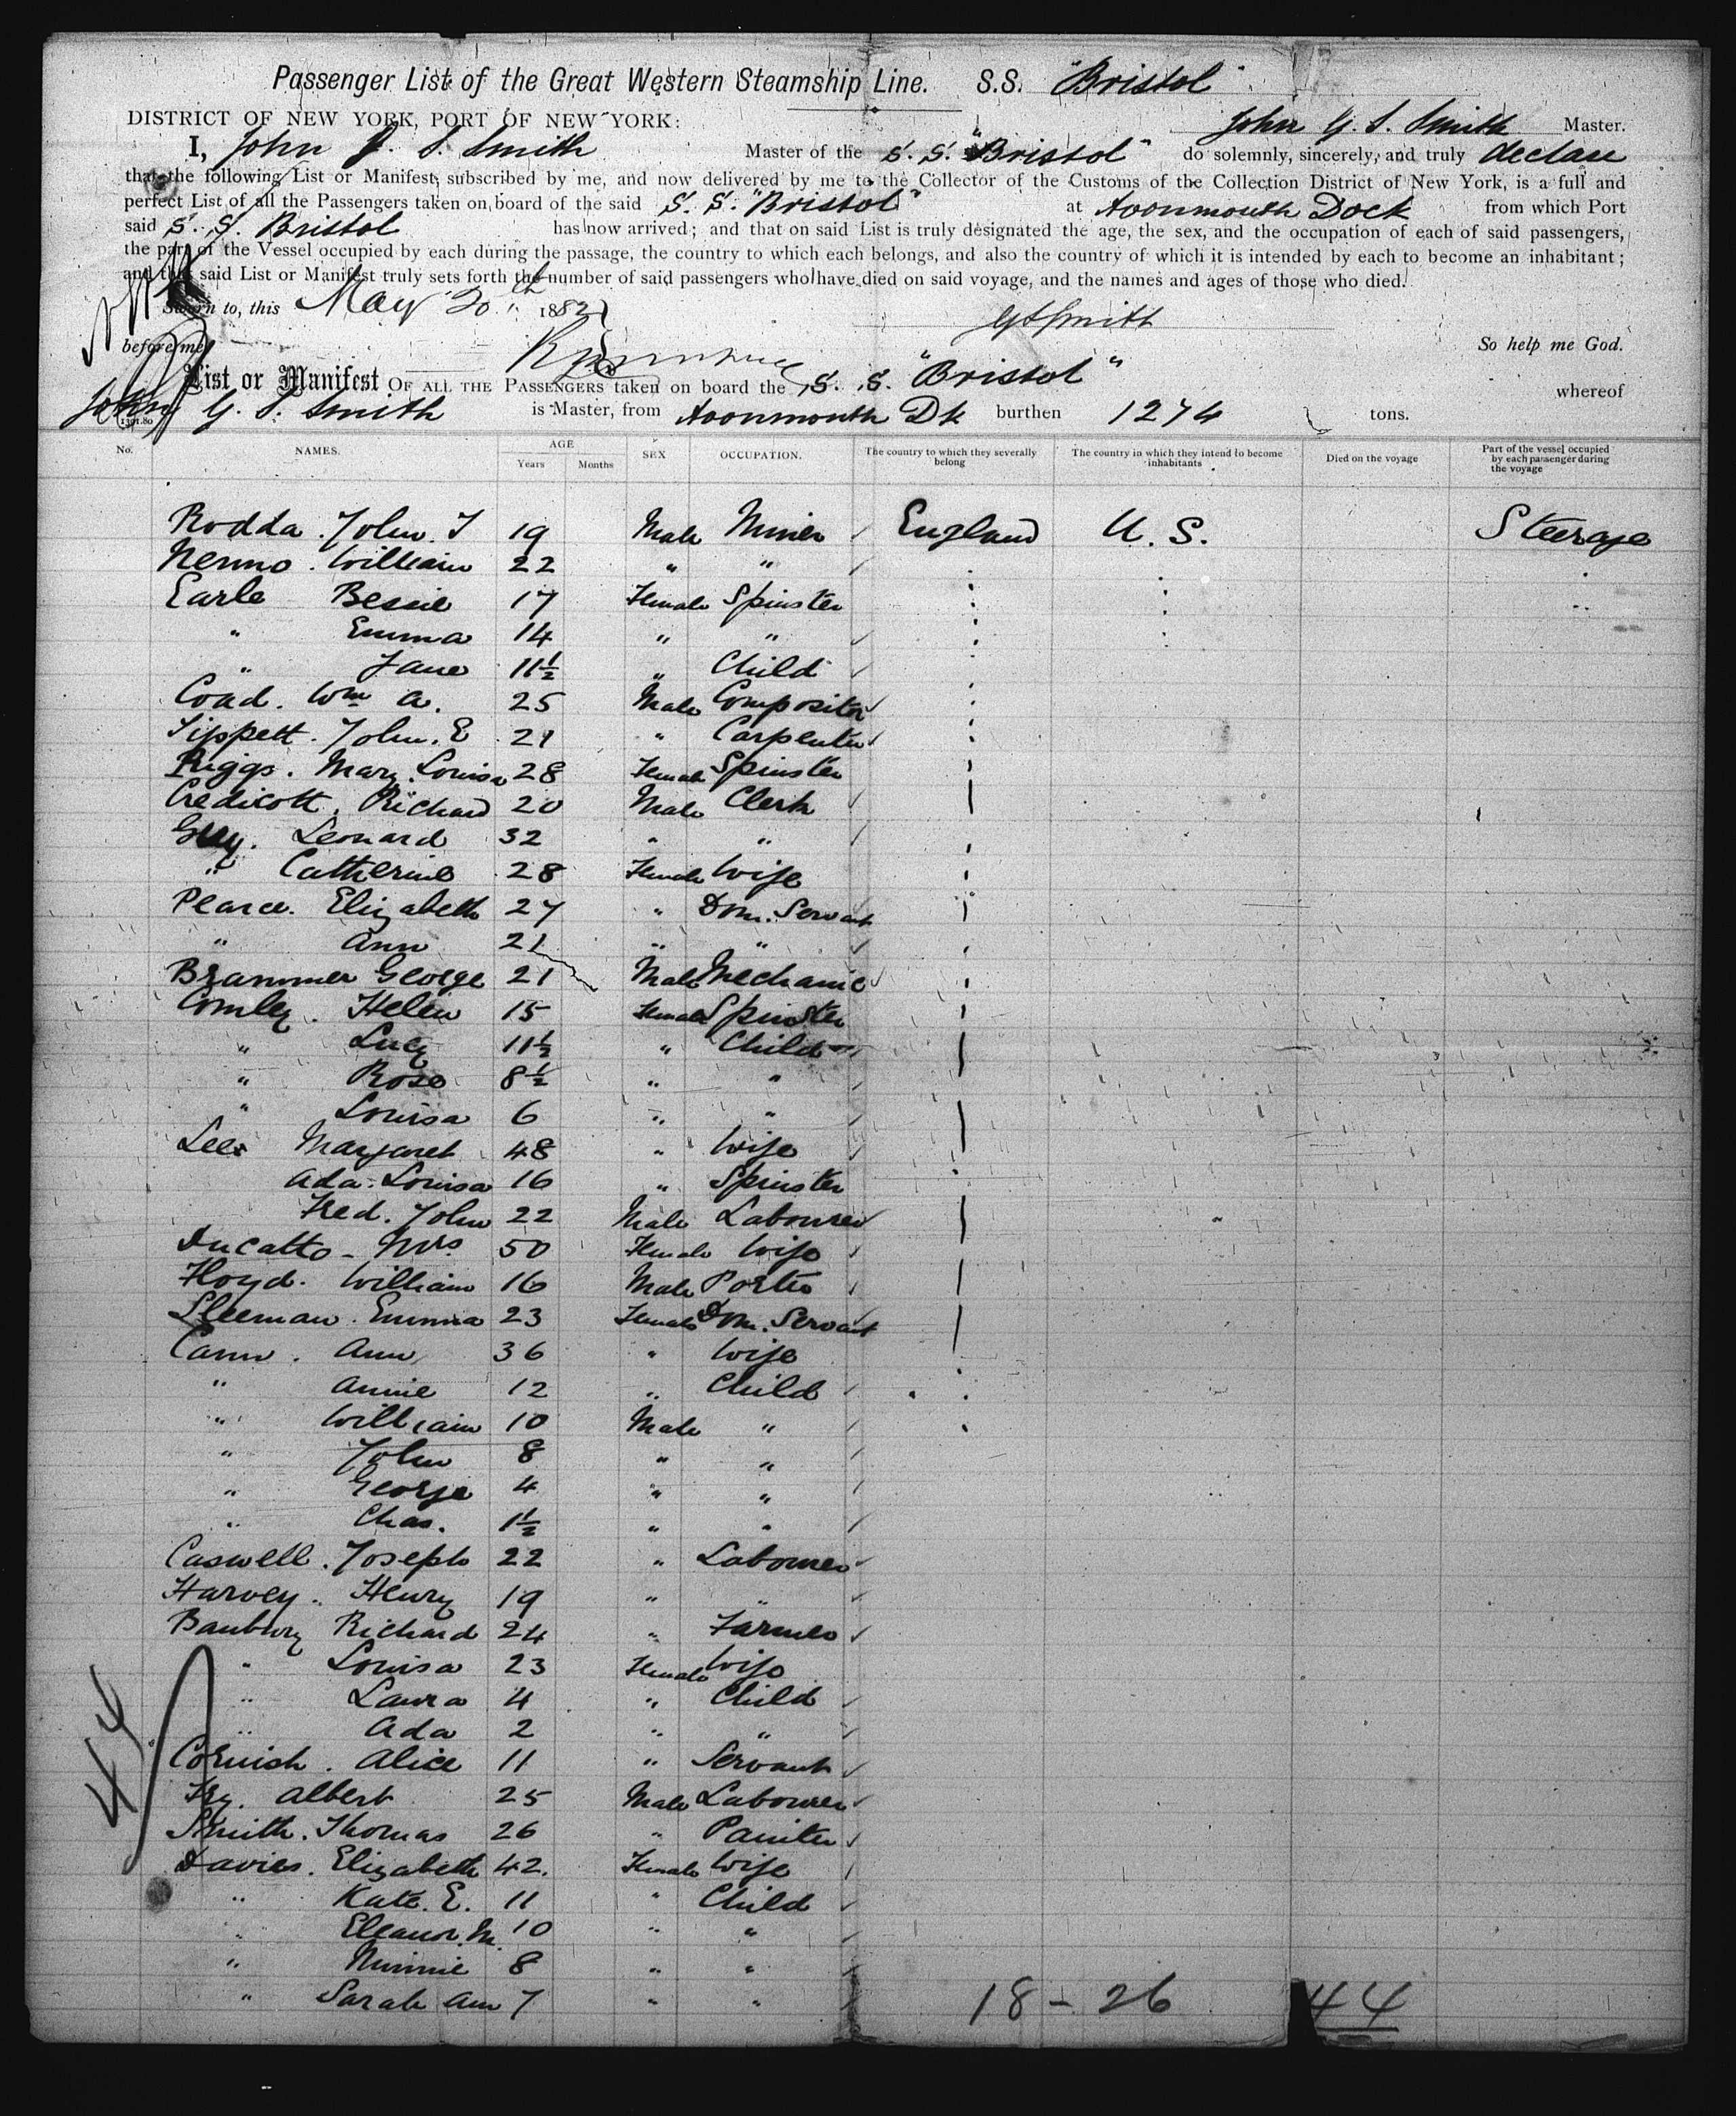 Passenger List of the Great Western Steamship Line. S.S. "Bristol"
DISTRICT OF NEW YORK, PORT OF NEW YORK: John G. S. Smith Master.
I, John G. S. Smith Master of the S. S. "Bristol" do solemnly, sincerely, and truly declare
that the following List or Manifest, subscribed by me, and now delivered by me to the Collector of the Customs of the Collection District of New York, is a full and
perfect List of all the Passengers taken on board of the said S. S. "Bristol" at Avonmouth Dock from which Port
said S. S. Bristol has now arrived; and that on said List is truly designated the age, the sex, and the occupation of each of said passengers,
the part of the Vessel occupied by each during the passage, the country to which each belongs, and also the country of which it is intended by each to become an inhabitant;
and that said List or Manifest truly sets forth the number of said passengers who have died on said voyage, and the names and ages of those who died.
Sworn to, this May 20th 1882
GSSmith
before me So help me God.
List or Manifest OF ALL THE PASSENGERS taken on board the S. S. "Bristol" whereof
John G. S. Smith is Master, from Avonmouth Dk burthen 1274 tons.
No. NAMES. AGE Years Months SEX OCCUPATION. The country to which they severally belong The country in which they intend to become inhabitants Died on the voyage Part of the vessel occupied by each passenger during the voyage
Rodda. John. T 19 Male Miner England U. S. Steerage
Nenno. William 22 " "
Earle Bessie 17 Female Spinster
" Emma 14 " "
" Jane 11½ " Child
Coad. Wm A. 25 Male Compositor
Tippett. John. E 21 " Carpenter
Riggs. Mary Louisa 28 Female Spinster
Credicott. Richard 20 Male Clerk
Guy. Leonard 32 " "
" Catherine 28 Female Wife
Pearce. Elizabeth 27 " Dom. Servant
" Ann 21 " "
Brammer George 21 Male Mechanic
Comley. Helen 15 Female Spinster
" Lucy 11½ " Child
" Rose 8½ " "
" Louisa 6 " "
Lee Margaret 48 " Wife
Ada. Louisa 16 " Spinster
Fred. John 22 Male Labourer
Ducatto - Mrs 50 Female Wife
Floyd. William 16 Male Porter
Sleeman. Emma 23 Female Dom. Servant
Cann. Ann 36 " Wife
" Annie 12 " Child
" William 10 Male "
" John 8 " "
" George 4 " "
" Chas. 1½ " "
Caswell. Joseph 22 " Labourer
Harvey. Henry 19 " "
Banbury Richard 24 " Farmer
" Louisa 23 Female Wife
" Laura 4 " Child
" Ada 2 " "
Cornish. Alice 11 " Servant
Fry. Albert 25 Male Labourer
Smith. Thomas 26 " Painter
Davies. Elizabeth 42. Female Wife
" Kate. E. 11 " Child
" Eleanor. M. 10 " "
" Minnie 8 " "
" Sarah Ann 7 " "
44
18 - 26 44